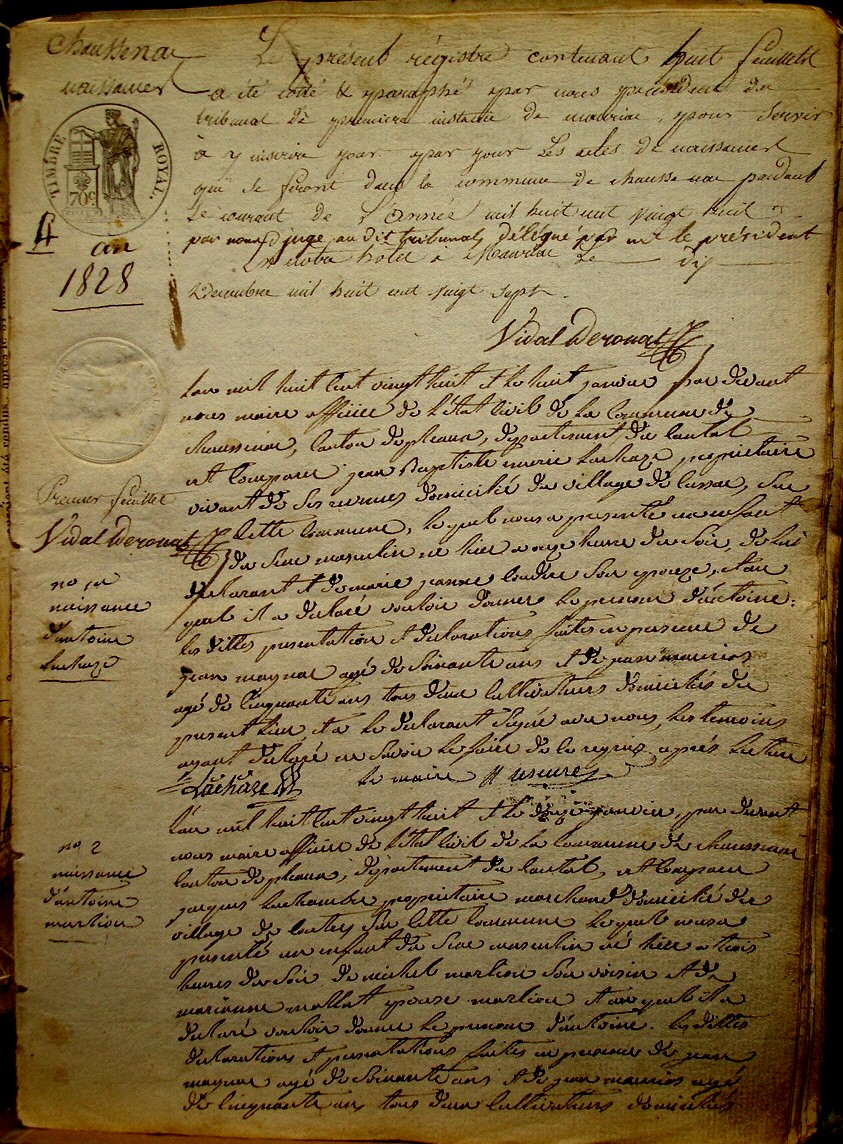 Chaussenac
naissances
TIMBRE ROYAL
70c
4
an
1828
Le présent régistre contenant huit feuillets
a été coté & paraphé par nous président du
tribunal de premiere instance de mauriac, pour servir
à y inscrire jour par jour Les actes de naissances
qui se feront dans la commune de chaussenac pendant
Le courant de L'année mil huit cent vingt huit
par nous d juge au dit tribunal délégué par mr le président
En notre hotel à Mauriac Le dix
Décembre mil huit cent vingt sept.
Vidal Derouat
Premier feuillet
Vidal Derouat
no 1er
naissance
d'antoine
Lachaze
L'an mil huit cent vingt huit et le huit janvier par devant
nous maire officier de l'état civil de la commune de
chaussenac, canton de pleaux, département du cantal
est comparu jean Baptiste marie Lachaze propriétaire
vivant de ses revenus domicilié du village de cussac, sur
cette commune, lequel nous a presenté un enfant
du sexe masculin né hier a onze heures du soir, de lui
déclarant et de marie jeanne son epouze, et au
quel il a déclaré vouloir donner le prenom d'antoine:
les dittes presentation et declarations faites en presence de
jean maynac agé de soixante ans et de jean mauriois
agé de cinquante ans tous deux cultivateurs domiciliés du
present lieu, et a le declarant signé avec nous, les temoins
ayant declaré ne savoir le faire de ce requis aprés lecture
Lachaze Le maire
no 2
naissance
d'antoine
martiou
L'an mil huit cent vingt huit et le douze janvier, par devant
nous maire officier de l'état civil de la commune de chaussenac
canton de pleaux, département du cantal, est comparu
jacques Lachambre propriétaire marchand domicilié du
village de contes sur cette commune lequel nous a
presenté un enfant du sexe masculin né hier a trois
heures du soir de michel martiou son voisin et de
marianne mallat epouse martiou et au quel il a
declaré vouloir donner le prenom d'antoine. les dittes
declarations et presentations faites en presence de jean
maynac agé de soixante ans et de jean mauriois agé
de cinquante ans tous deux cultivateurs domiciliés